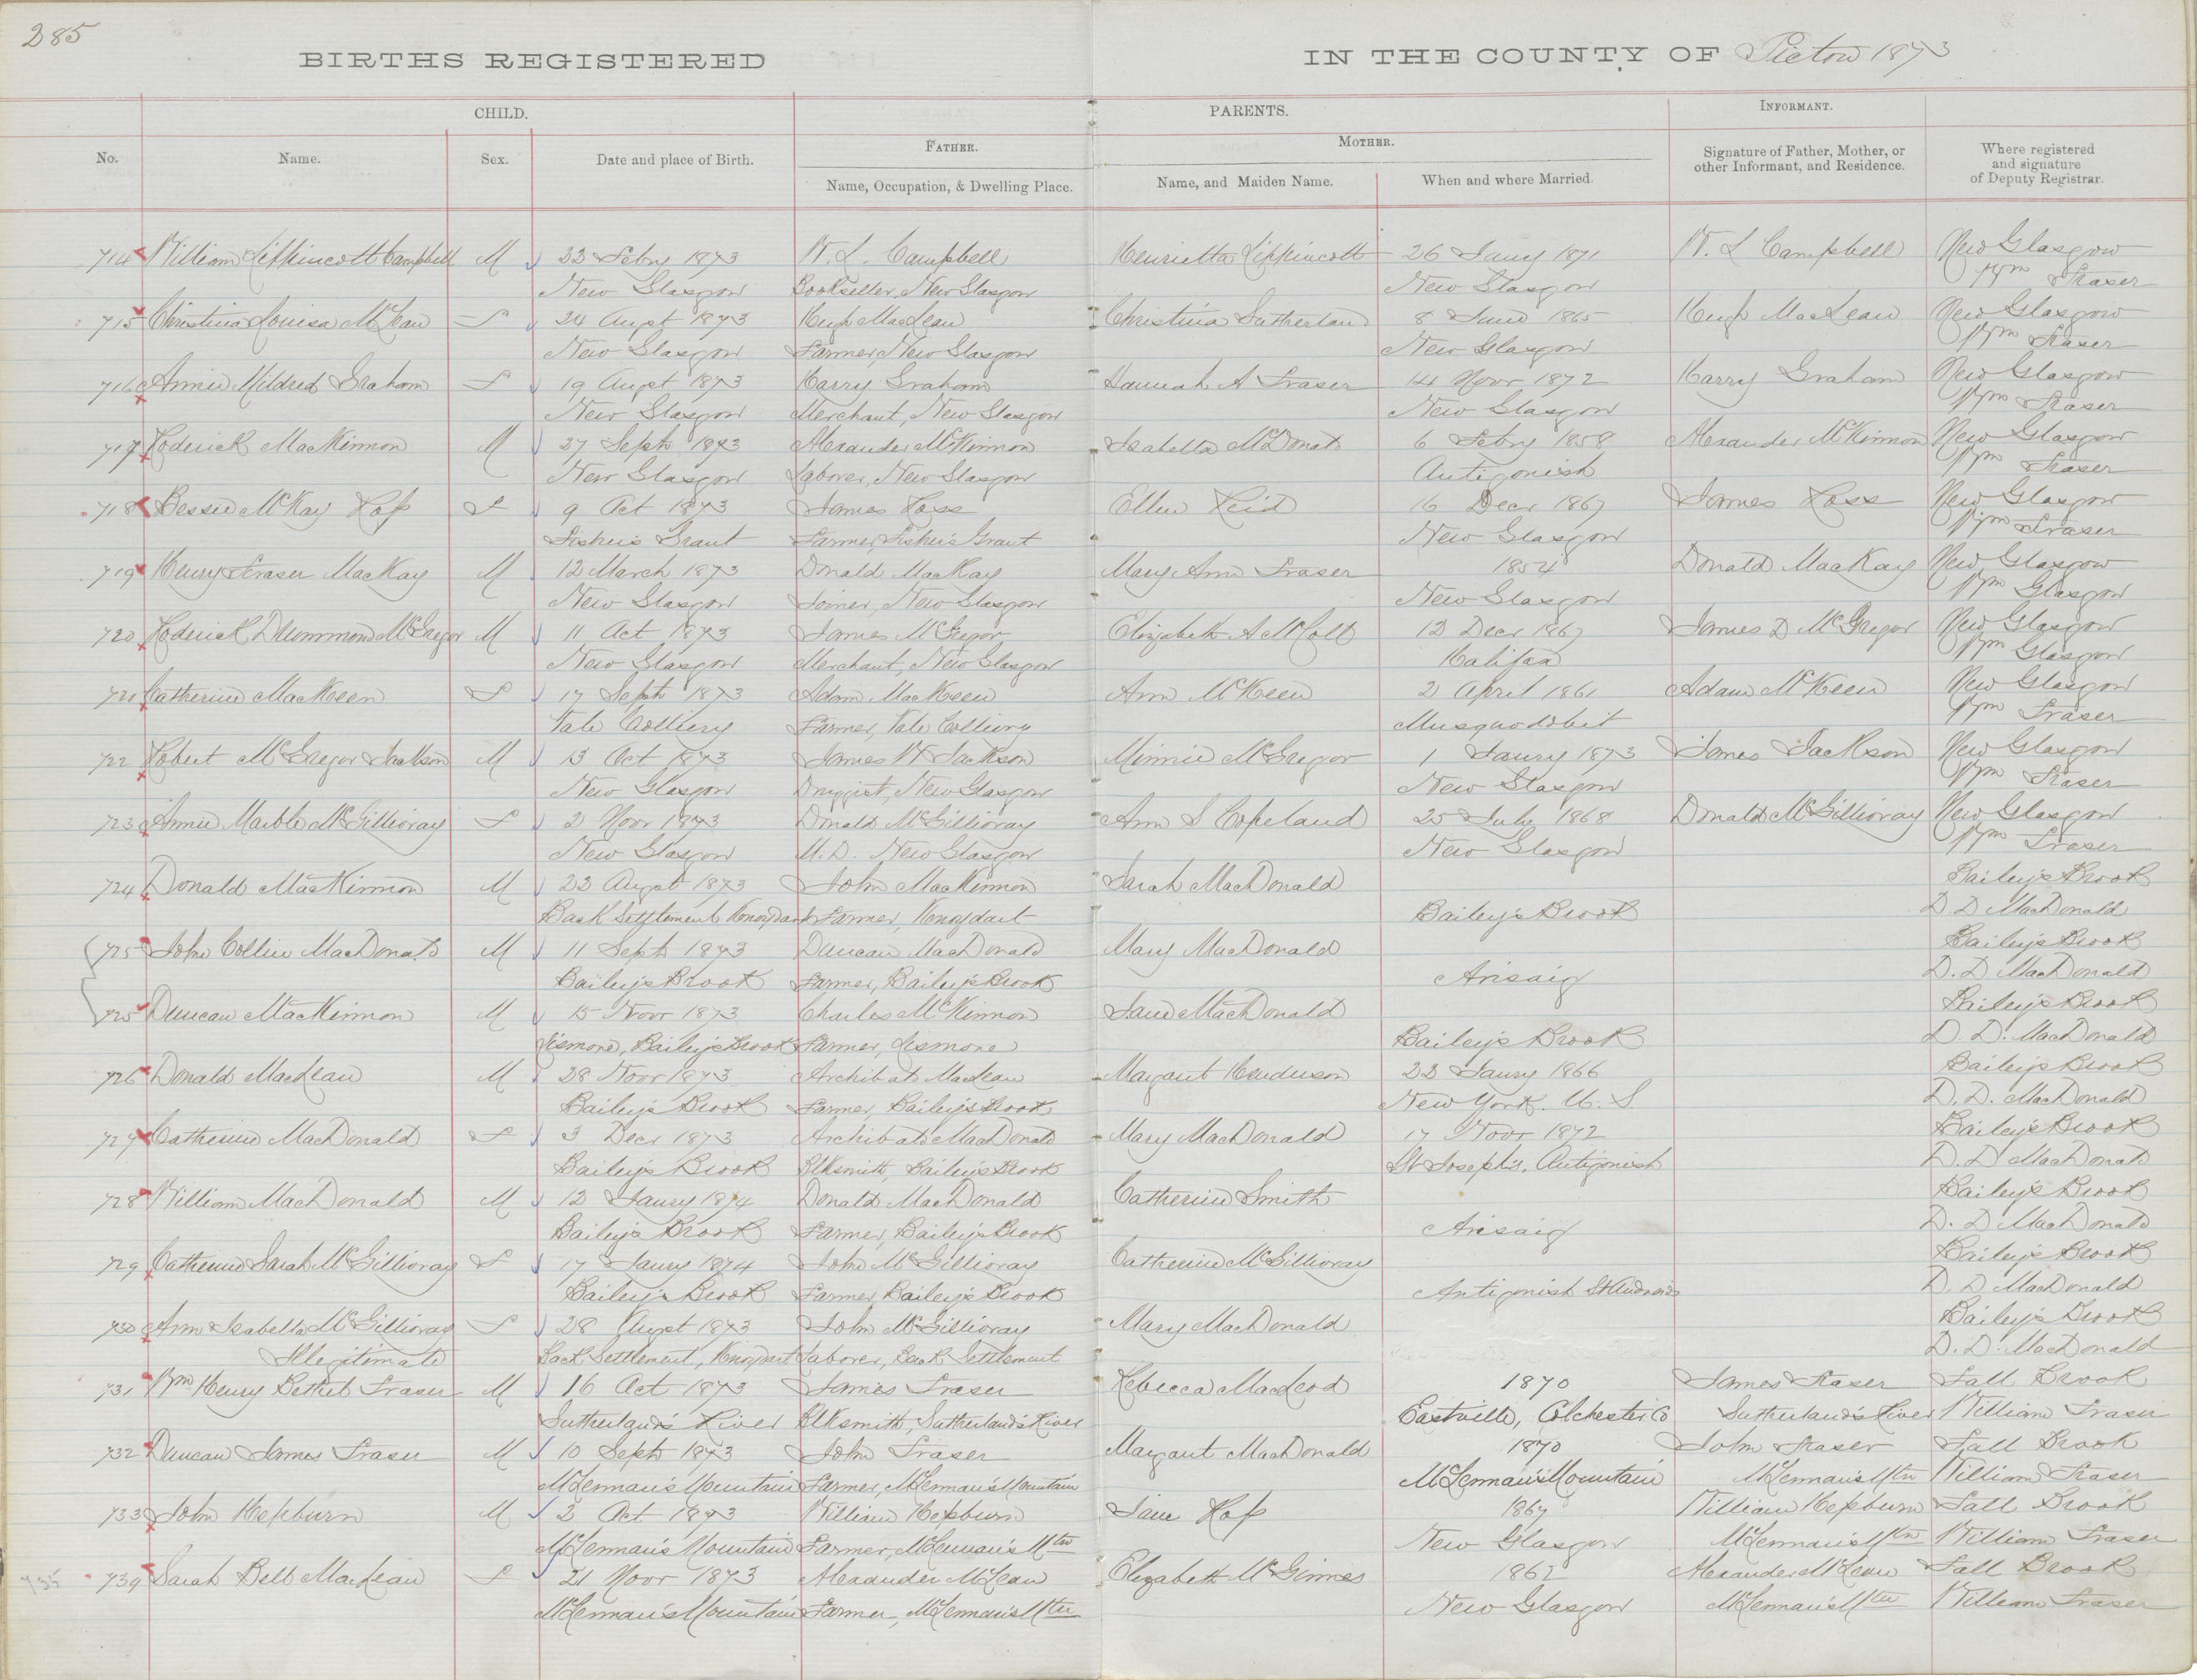 285
BIRTHS REGISTERED IN THE COUNTY OF Pictou 1873
CHILD. PARENTS. INFORMANT.
No. Name. Sex. Date and place of Birth. FATHER. Name, Occupation, & Dwelling Place. MOTHER. Name, and Maiden Name. When and where Married. Signature of Father, Mother, or other Informant, and Residence. Where registered and signature of Deputy Registrar.
714 William Lippincott Campbell M 22 Feby 1873 W. L. Campbell Henrietta Lippincott 26 Jany 1871 W. L Campbell New Glasgow
New Glasgow Bookseller, New Glasgow New Glasgow Wm Fraser
715 Christina Louisa McLean F 24 Augt 1873 Hugh MacLean Christina Sutherland 8 June 1865 Hugh MacLean New Glasgow
New Glasgow Farmer, New Glasgow New Glasgow Wm Fraser
716 Annie Mildred Graham F 19 Augst 1873 Harry Graham Hannah A Fraser 14 Novr 1872 Harry Graham New Glasgow
New Glasgow Merchant, New Glasgow New Glasgow Wm Fraser
717 Roderick MacKinnon M 27 Sept 1873 Alexander McKinnon Isabella McDonald 6 Feby 1858 Alexander McKinnon New Glasgow
New Glasgow Laborer, New Glasgow Antigonish Wm Fraser
718 Bessie McKay Ross F 9 Oct 1873 James Ross Ellen Reid 16 Decr 1867 James Ross New Glasgow
Fisher's Grant Farmer, Fisher's Grant New Glasgow Wm Fraser
719 Henry Fraser MacKay M 12 March 1873 Donald MacKay Mary Ann Fraser 1854 Donald MacKay New Glasgow
New Glasgow Joiner, New Glasgow New Glasgow Wm Glasgow
720 Roderick Drummond McGregor M 11 Oct 1873 James McGregor Elizabeth A McColl 12 Decr 1867 James D McGregor New Glasgow
New Glasgow Merchant, New Glasgow Halifax Wm Glasgow
721 Catherine MacKeen F 17 Sept 1873 Adam MacKeen Ann McKeen 2 April 1861 Adam McKeen New Glasgow
Vale Colliery Farmer, Vale Colliery Musquodobit Wm Fraser
722 Robert McGregor Jackson M 13 Oct 1873 James W Jackson Minnie McGregor 1 Jany 1873 James Jackson New Glasgow
New Glasgow Druggist, New Glasgow New Glasgow Wm Fraser
723 Annie Marble McGillivray F 2 Novr 1873 Donald McGillivray Ann S Copeland 25 July 1868 Donald McGillivray New Glasgow
New Glasgow M.D. New Glasgow New Glasgow Wm Fraser
724 Donald MacKinnon M 22 Augst 1873 John MacKinnon Sarah MacDonald Bailey's Brook
Back Settlement Knoydart Farmer, Knoydart Bailey's Brook D D MacDonald
725 John Collin MacDonald M 11 Sept 1873 Duncan MacDonald Mary MacDonald Bailey's Brook
Bailey's Brook Farmer, Bailey's Brook Arisaig D. D MacDonald
725 Duncan MacKinnon M 15 Novr 1873 Charles McKinnon Jane MacDonald Bailey's Brook
Lismore, Bailey's Brook Farmer, Lismore Bailey's Brook D. D. MacDonald
726 Donald MacLean M 28 Novr 1873 Archibald MacLean Margaret Henderson 22 Jany 1866 Bailey's Brook
Bailey's Brook Farmer, Bailey's Brook New York. U. S. D. D. MacDonald
727 Catherine MacDonald F 3 Decr 1873 Archibald MacDonald Mary MacDonald 17 Novr 1872 Bailey's Brook
Bailey's Brook Blksmith, Bailey's Brook St Joseph's, Antigonish D. D MacDonald
728 William MacDonald M 12 Jany 1874 Donald MacDonald Catherine Smith Bailey's Brook
Bailey's Brook Farmer, Bailey's Brook Arisaig D. D MacDonald
729 Catherine Sarah McGillivray F 17 Jany 1874 John McGillivray Catherine McGillivray Bailey's Brook
Bailey's Brook Farmer Bailey's Brook Antigonish St Andrews D. D MacDonald
730 Ann Isabella McGillivray F 28 Augst 1873 John McGillivray Mary MacDonald Bailey's Brook
Illegitimate Back Settlement, Knoydart Laborer, Back Settlement D. D. MacDonald
731 Wm Henry Bethel Fraser M 16 Oct 1873 James Fraser Rebecca MacLeod 1870 James Fraser Fall Brook
Sutherland's River Blksmith, Sutherland's River Eastville, Colchester Co Sutherland's River William Fraser
732 Duncan James Fraser M 10 Sept 1873 John Fraser Margaret MacDonald 1870 John Fraser Fall Brook
McLennan's Mountain Farmer, McLennan's Mountain McLennan's Mountain McLennan's Mtn William Fraser
733 John Hepburn M 2 Oct 1873 William Hepburn Jane Ross 1867 William Hepburn Fall Brook
McLennan's Mountain Farmer, McLennan's Mtn New Glasgow McLennan's Mtn William Fraser
735 739 Sarah Bell MacLean F 21 Novr 1873 Alexander McLean Elizabeth McGinnes 1862 Alexander McLean Fall Brook
McLennan's Mountain Farmer, McLennan's Mtn New Glasgow McLennan's Mtn William Fraser